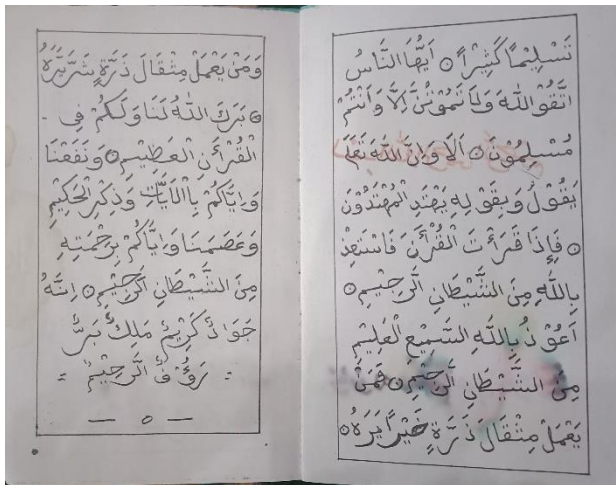 تَسْلِيْمًا كَثِيْرًا ۝ اَيُّهَا النَّاسُ
اتَّقُو اللهَ وَلَا تَمُوْتُنَّ اِلَّا وَاَنْتُمْ
مُسْلِمُوْنَ ۝ اَلَا وَاِنَّ اللهَ تَعَلَى
يَقُوْلُ وَبِقَوْلِهِ يَهْتَدِ الْمُهْتَدُوْنَ
۝ فَاِذَا قَرَءْتَ الْقُرْأٰنَ فَاسْتَعِذْ
بِاللهِ مِنَ الشَّيْطَانِ الَّرجِيْمِ ۝
اَعُوْذُ بِاللهِ السَّمِيْعِ الْعَلِيْمِ
مِنَ الشَّيْطَانِ الَّرجِيْمِ ۝ فَمَنْ
يَعْمَلْ مِثْقَالَ ذَرَّةٍ خَيْرًا يَرَهُ ۝
وَمَنْ يَعْمَلْ مِثْقَالَ ذَرَّةٍ شَرَّ يَّرَهُ
۝ بَرَكَ اللهُ لَنَا وَلَكُمْ فِى -
الْقُرْأٰنِ الْعَظِيْمِ ۝ وَنَفَعْنَا
وَاِيَّاكُمْ بِاْلآيَٰتِ وَذِكْرِ الْحَكِيْمِ
وَعَصَمَنَا وَاِيَّاكُمْ بِرَحْمَتِهِ
مِنَ الشَّيْطَانِ الَّرجِيْمِ ۝ اِنَّهُ
جَوَادٌ كَرِيْمٌ مَلِكٌ بَرٌّ
= رَؤُفٌ الَّرحِيْمٌ =
— ٥ —